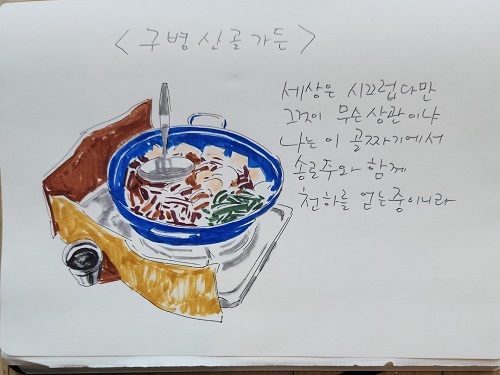 <구병산골가든>
세상은 시끄럽다만
그것이 무슨 상관이냐
나는 이 골짜기에서
송로주와 함께
천하를 얻는중이니라